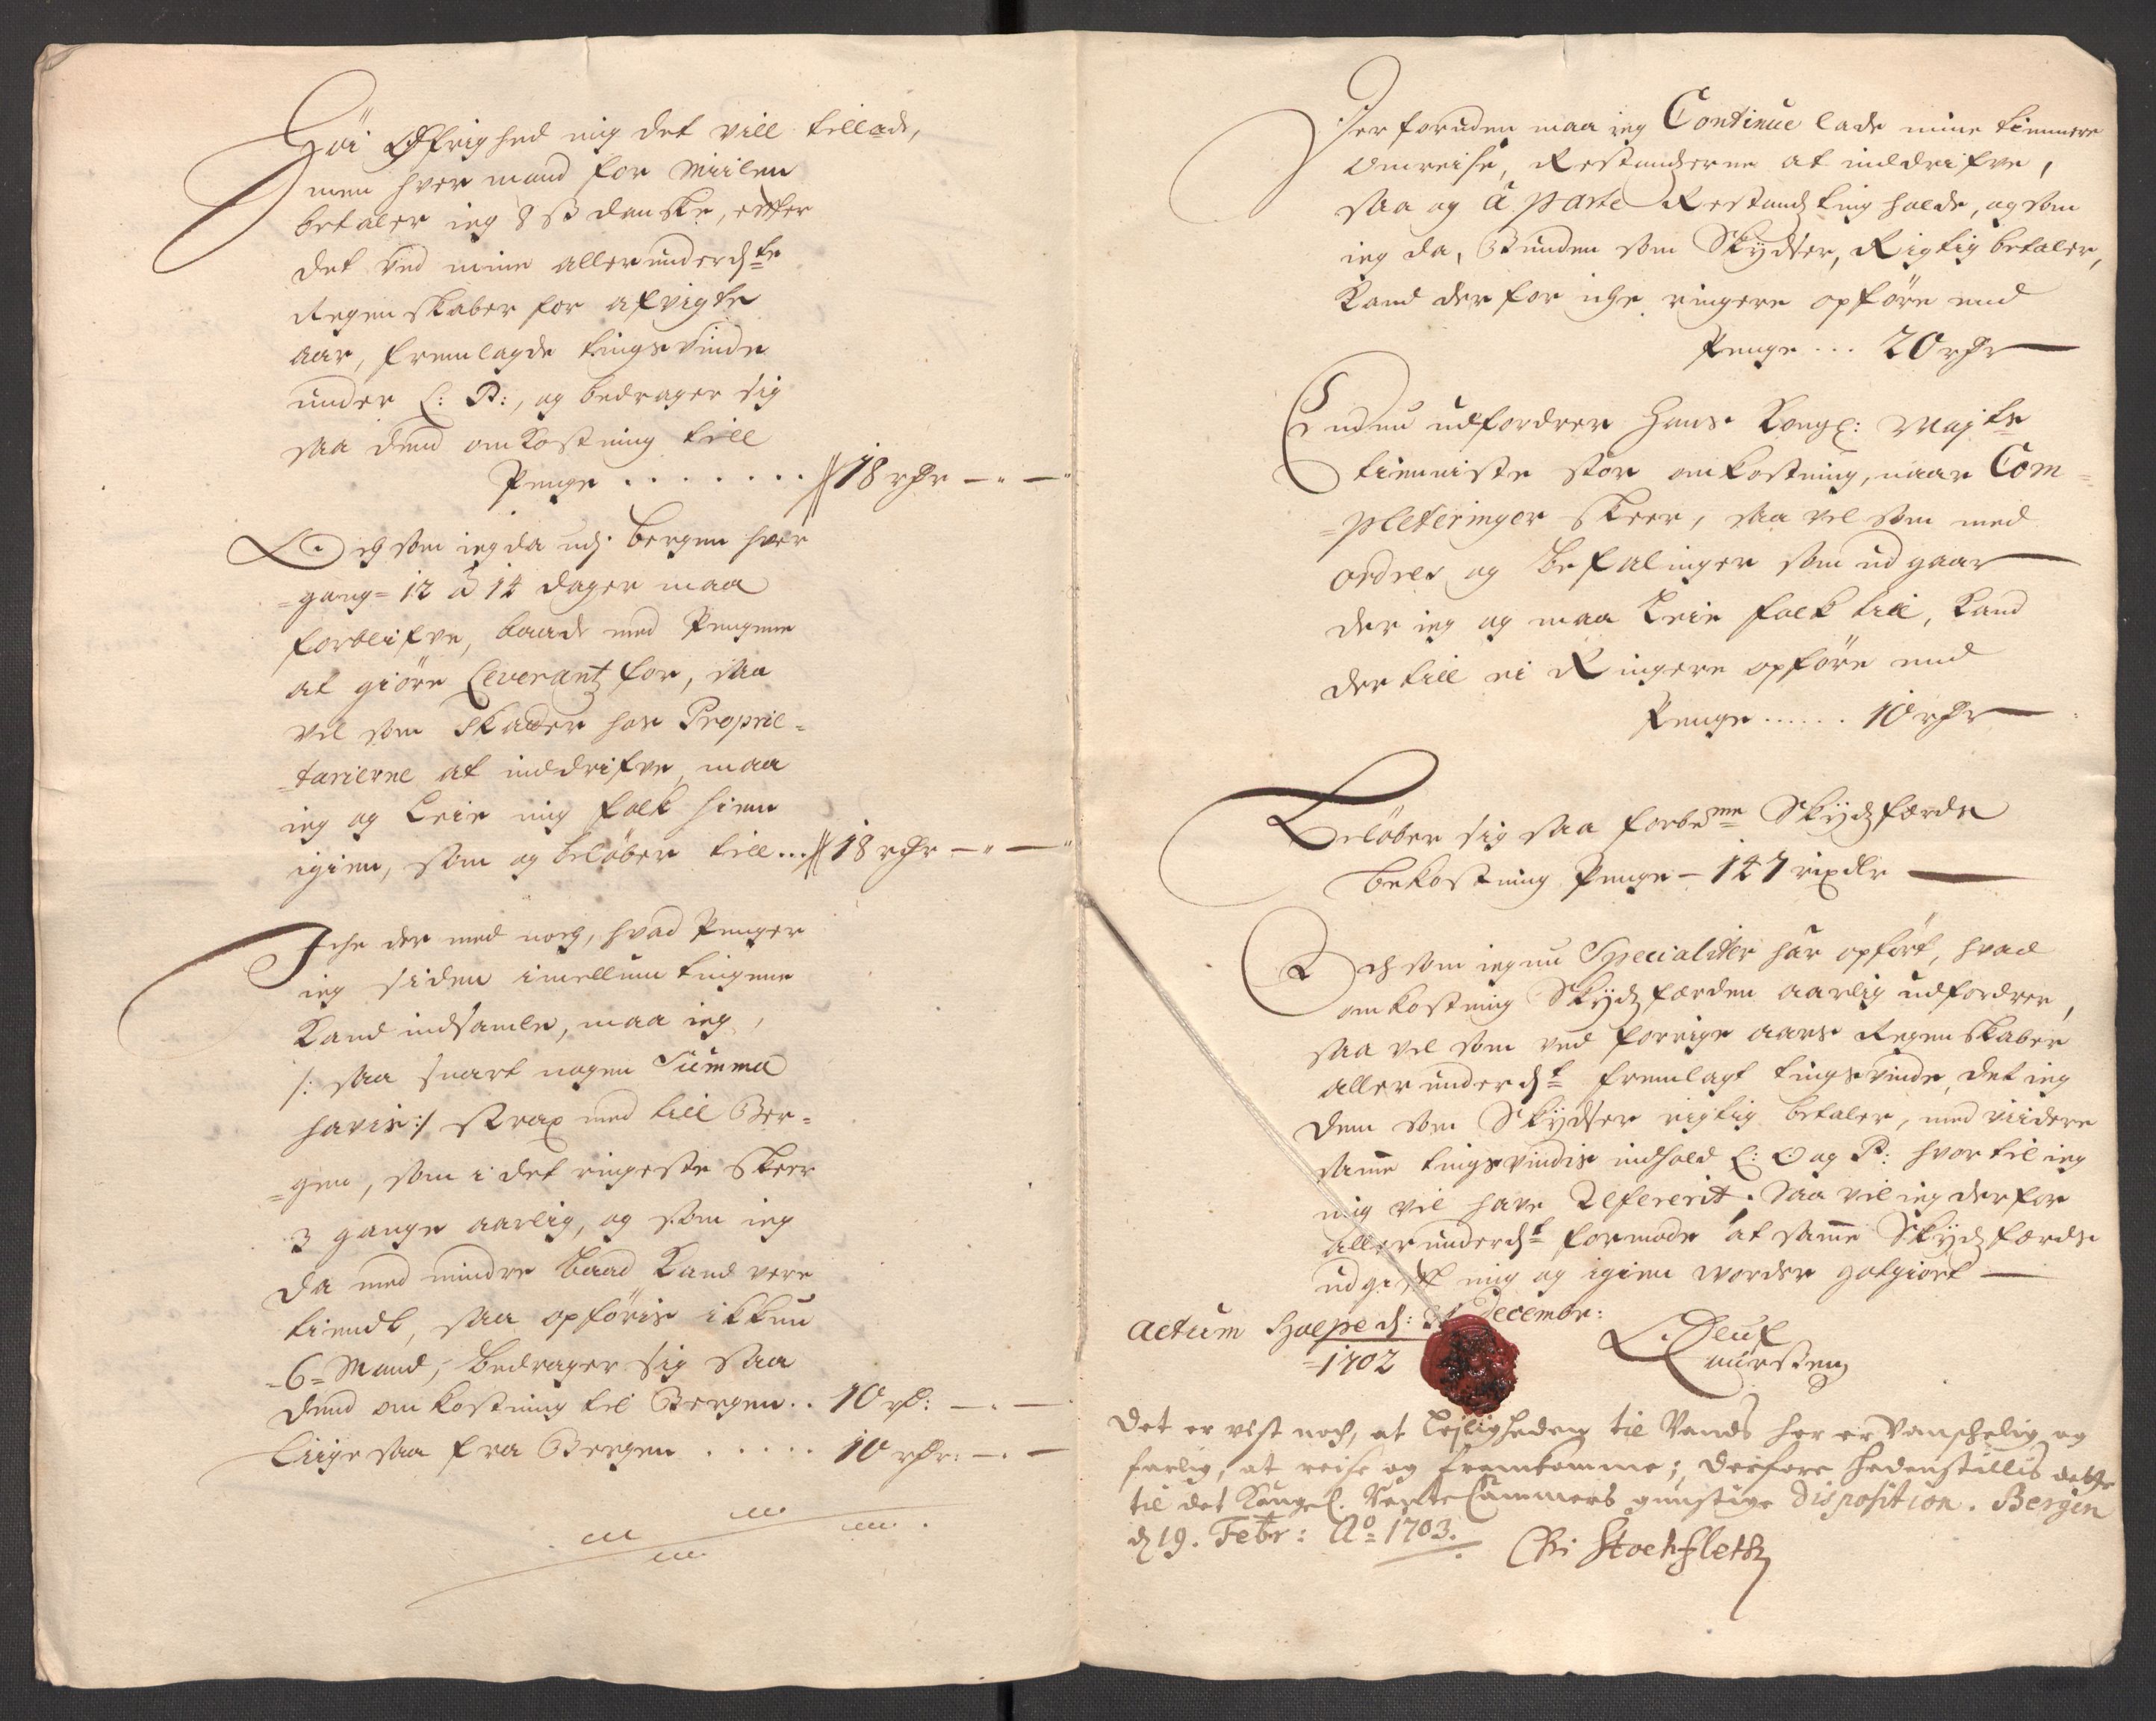 Höi Øffrighed mig det vill tillade,
men hver mand for Miilen
betaler ieg 8 ß danske, efter
det ved mine allerunderdste
Regenskaber for afvigte
aar, fremlagde tingsvinde
under L: P:, og bedrager sig
saa dend omkostning till
Penge . . . . . . . 18 rdr — " — "
Och som ieg da udj Bergen hver
gang 12 à 14 dager maa
forblifve, baade med Pengene
at giöre Leverantz for, saa
vel som Skatter hos Proprie=
=tarierne at inddrifve, maa
ieg og Leie mig folk hiem
igien, som og beløber till ... 18 rdr — " — "
Iche der med noch, hvad Penger
ieg siden imellum tingene
Kand indsamle, maa ieg,
/: saa snart nogen Summa
havis :/ strax med till Ber=
=gen, som i det ringeste skeer
3 gange aarlig, og som ieg
da med mindre baad Kand vere
tiendt, saa opföris ikkun
6 Mand, bedrager sig saa
dend omkostning til Bergen .. 10 rd: — . —
Liige saa fra Bergen . . . . . 10 rdr: — . —
Der foruden maa ieg Continue lade mine tiennere
omreise, Restandzerne at inddrifve,
saa og à parte Restandz ting holde, og som
ieg da, Bunden som Skydser, Rigtig betaler,
Kand derfor iche ringere opföre end
Penge ... 20 rdr —
Endnu udfordrer Hans Kongl: Maÿts
tienniste stor omkostning, naar Com=
=pleteringer skeer, saa vel som med
ordres og befalinger som udgaar —
der ieg og maa Leie folk till, Kand
der till ei Ringere opföre end
Penge ...... 10 rdr —
Beløber sig saa forbemte Skÿdzferds
bekostning Penge – 147 rixdlr —
Och som ieg nu Specialiter har opfört, hvad
omkostning Skÿdzferden aarlig udfordrer,
saa vel som ved forrige aars Regenskaber
allerunderdst fremlagt tingsvinde, det ieg
dem som Skÿdser rigtig betaler, med viidere
samme tingsvindis indhold L: O og P: hvor til ieg
mig vil have Refererit. Saa vil ieg derfor
allerunderdst formode at samme Skÿdzferds
udgift mig og igien vorder gotgiort —
Actum d: 31 decembr:
=1702
Oluf
Laurssen
Det er vist noch, at Leyligheden til Vands her er Vanschelig og
farlig, at reise og fremkomme; derfore hedenstillis dette
til det Kongel. Rente Cammers gunstige disposition. Bergen
d 19. Febr: Ao 1703.
Chr Stockfleth